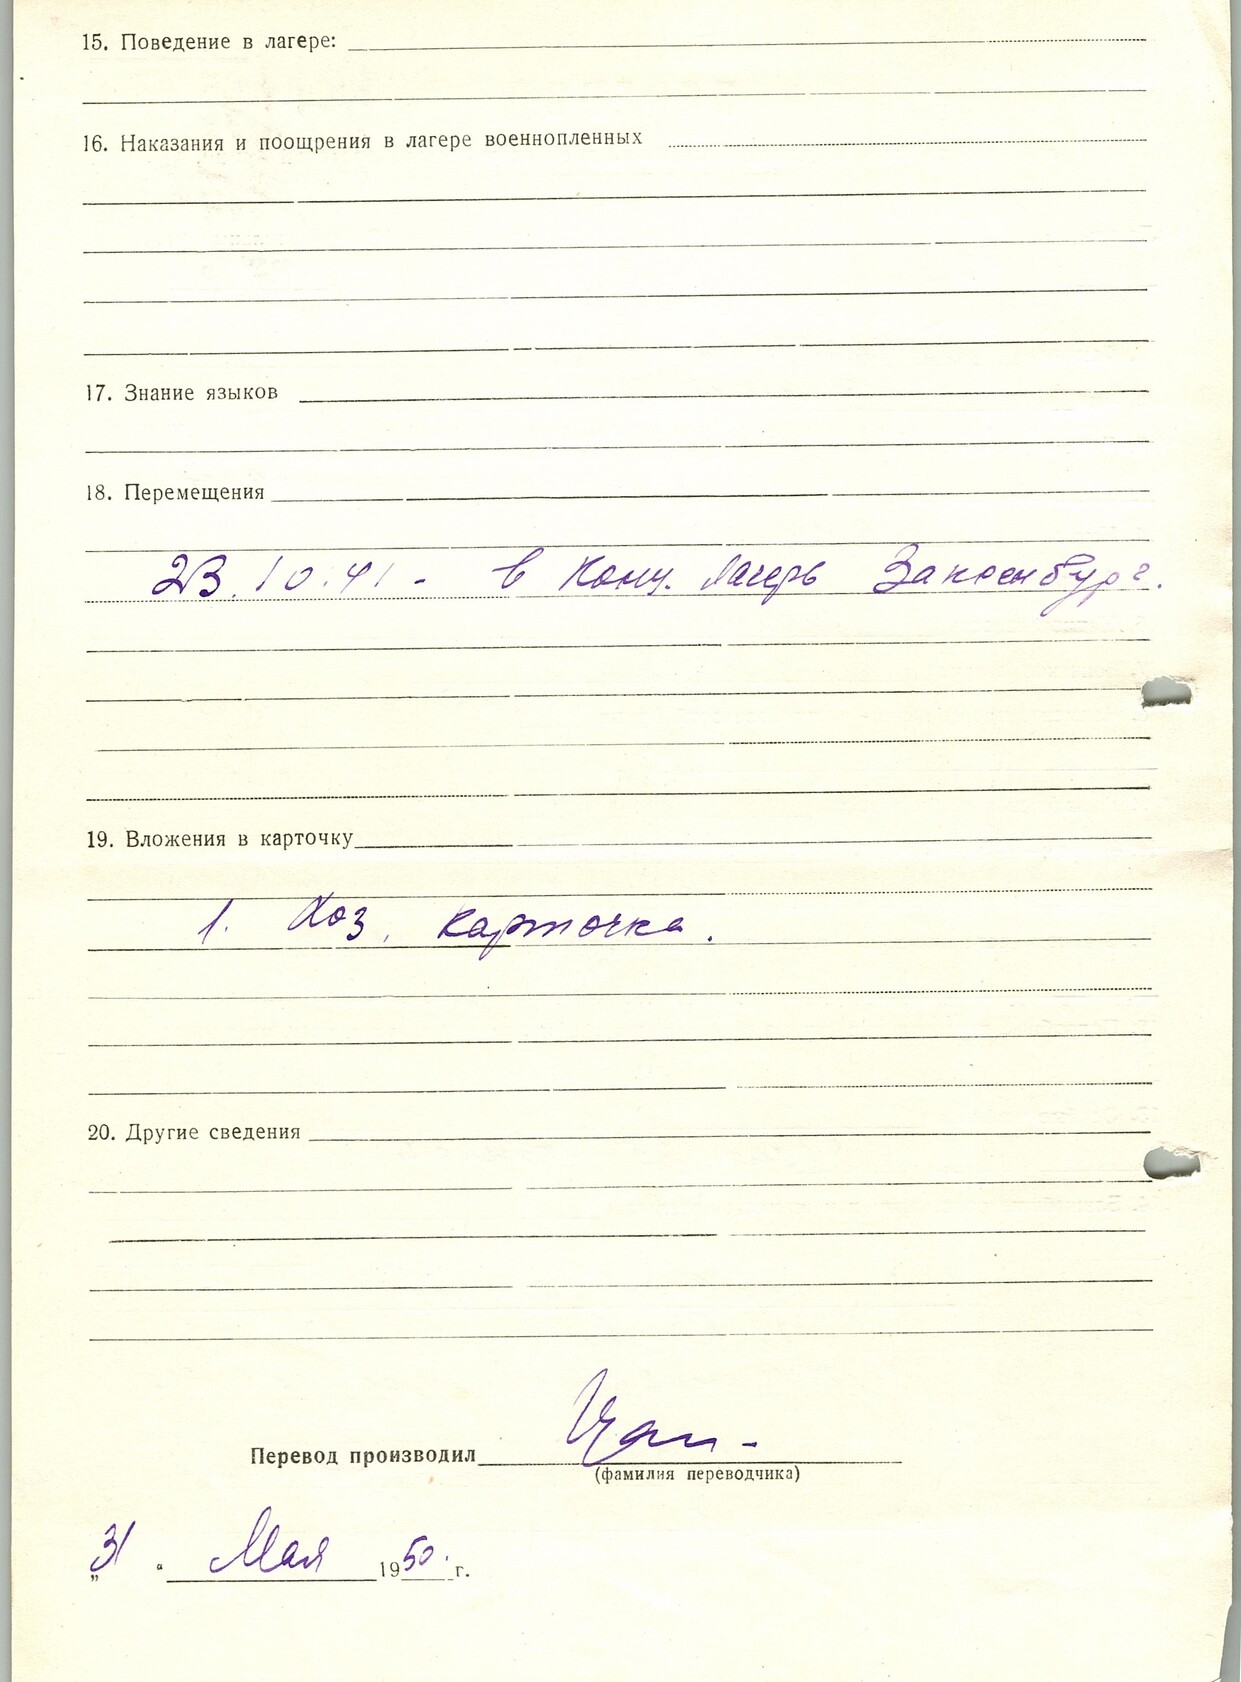 15. Поведение в лагере:
16. Наказания и поощрения в лагере военнопленных
17. Знание языков
18. Перемещения
23.10.41 - в Конц. лагерь Заксенбург.
19. Вложения в карточку
1. Хоз. карточка.
20. Другие сведения
Перевод производил
(фамилия переводчика)
„31“ Мая 1950 г.